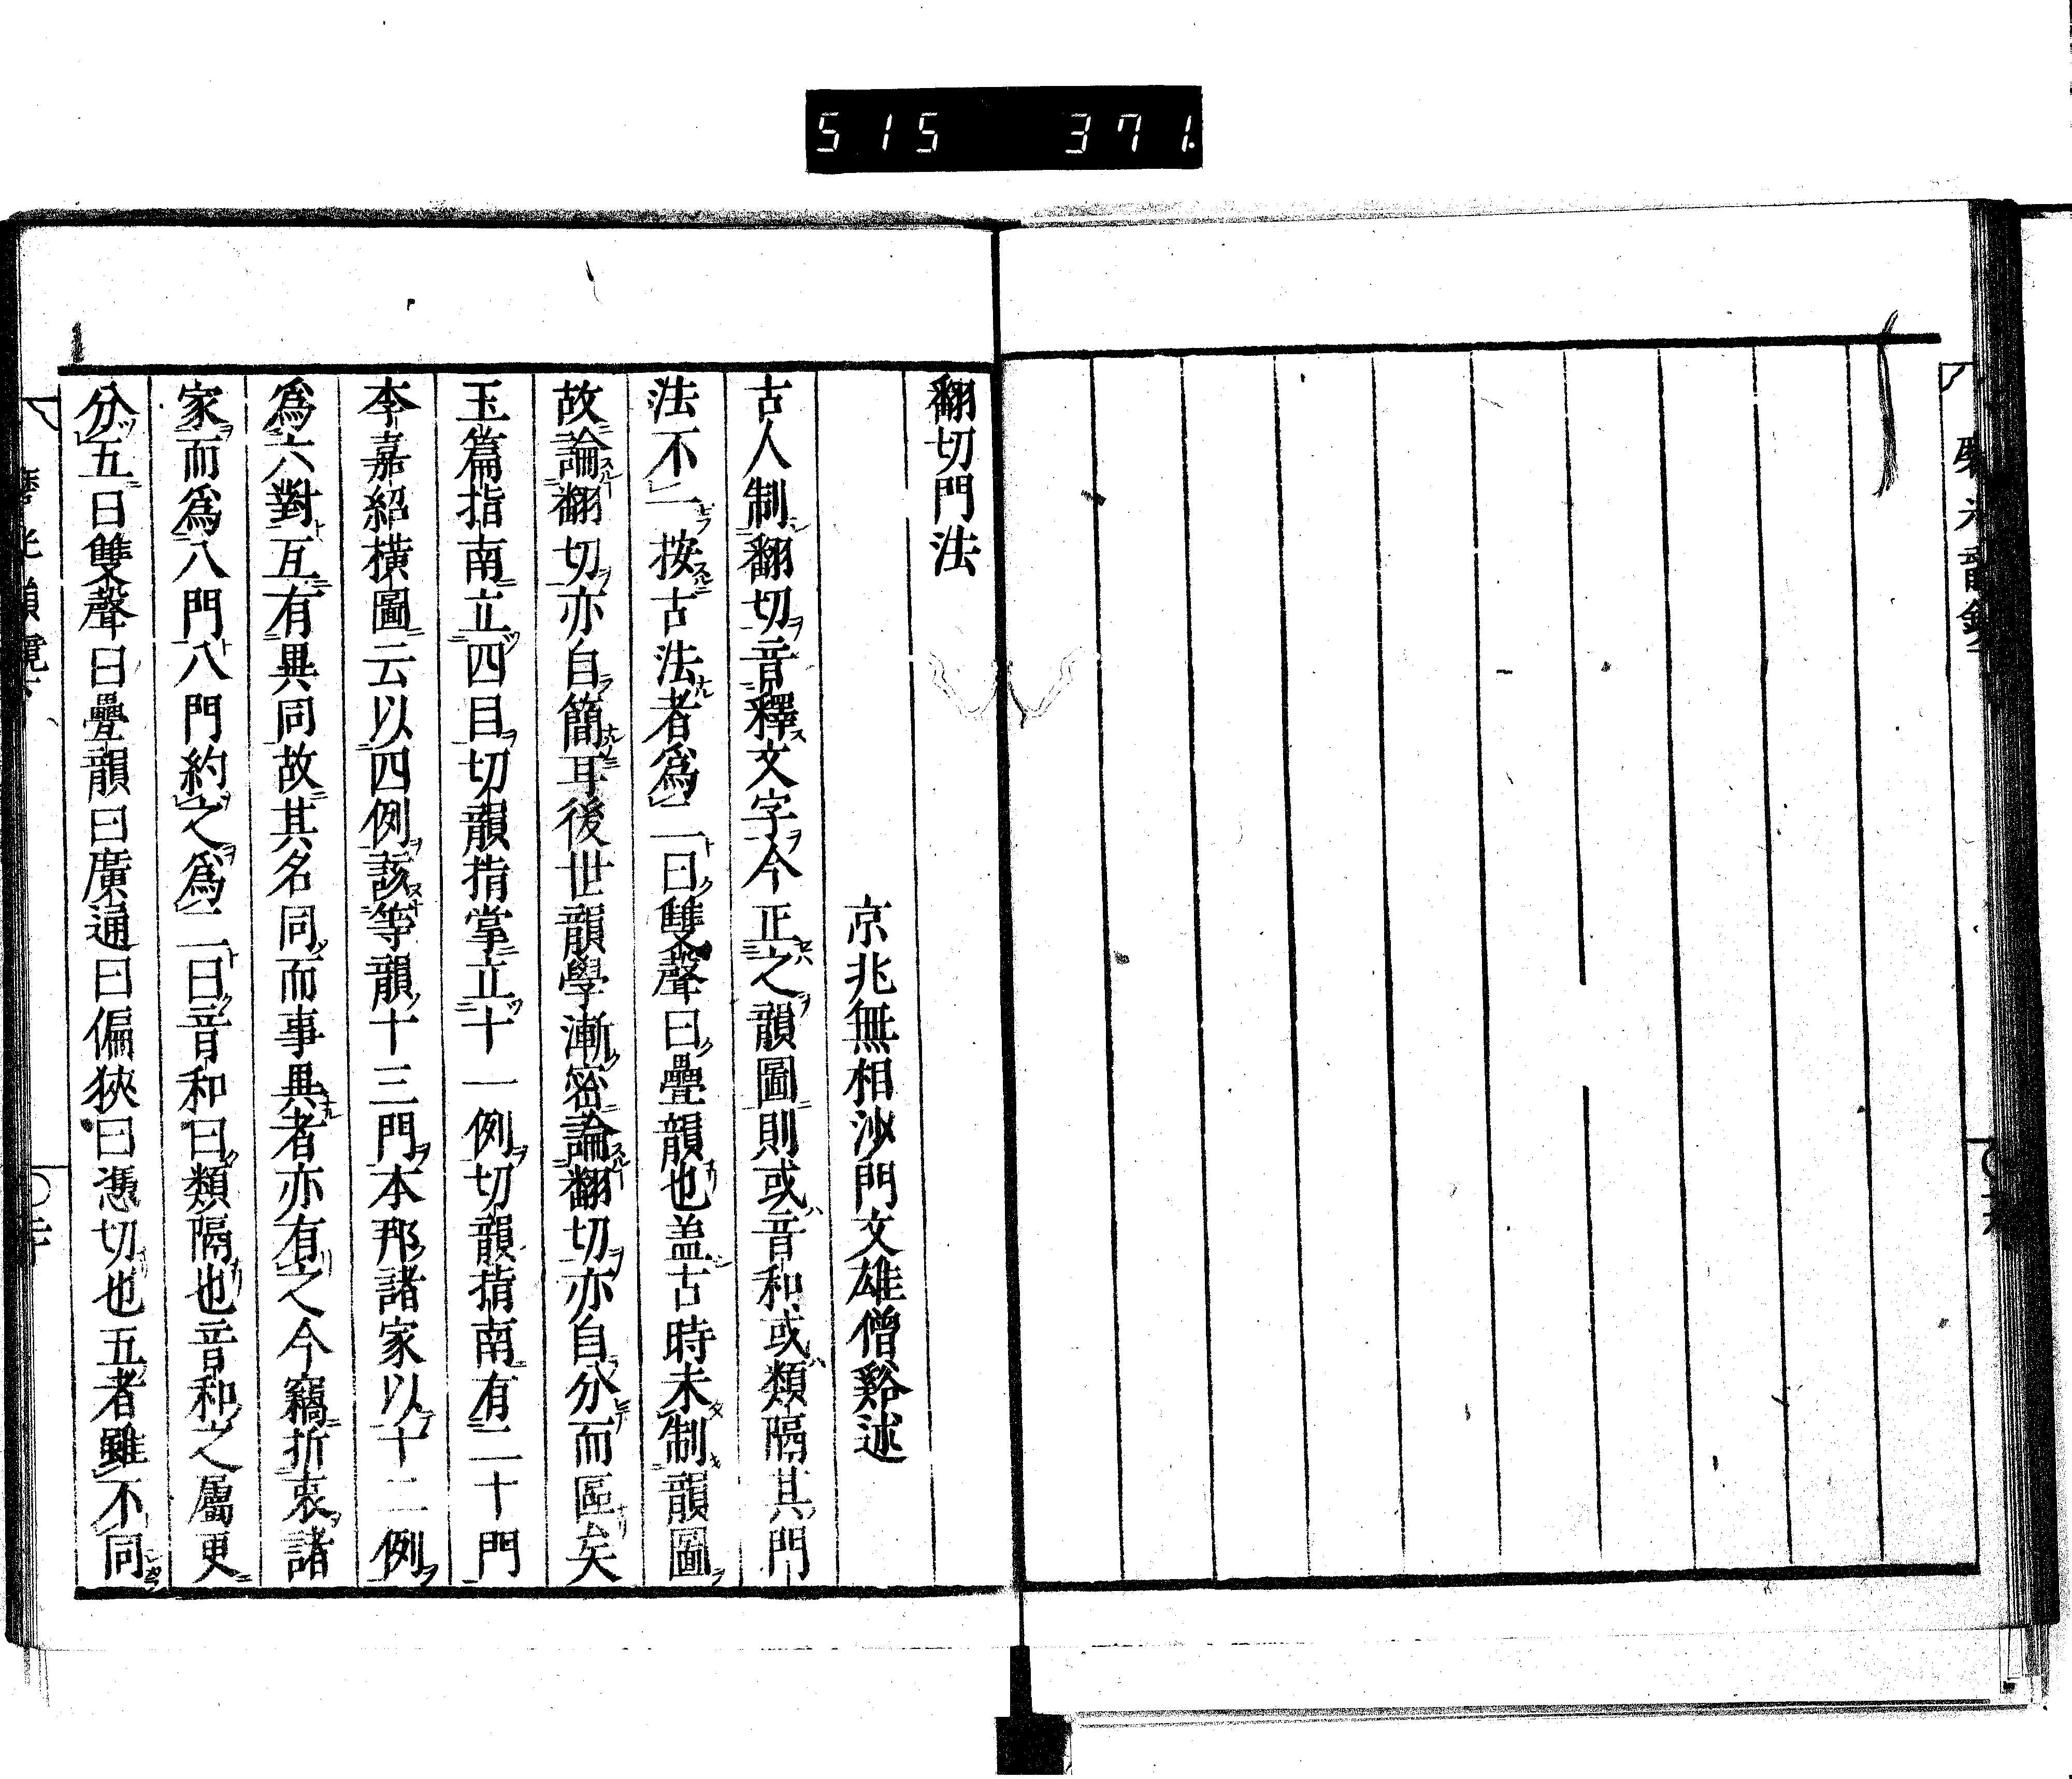 515 371.
翻切門法
京兆無相沙門文雄僧谿述
古人制翻切音釋文字今正之韻圖則或音和或類隔其門
法不一按古法者為二一曰雙聲曰疊韻也盖古時未制韻圖
故論翻切亦自簡耳後世韻學漸密論翻切亦自分而區矣
玉篇指南立四目切韻指掌立十一例切韻指南有二十門
李嘉紹橫圖云以四例該等韻十三門本邦諸家以十二例
為六對互有異同故其名同而事異者亦有之今竊折衷諸
家而為八門八門約之為二一曰音和曰類隔也音和之屬更
分五曰雙聲曰疊韻曰廣通曰偏狹曰憑切也五者雖不同